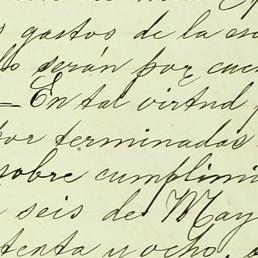 gastos de la es
serán por cue
= En tal virtud
por terminadas
sobre cumplimi
seis de May
tenta y ocho,